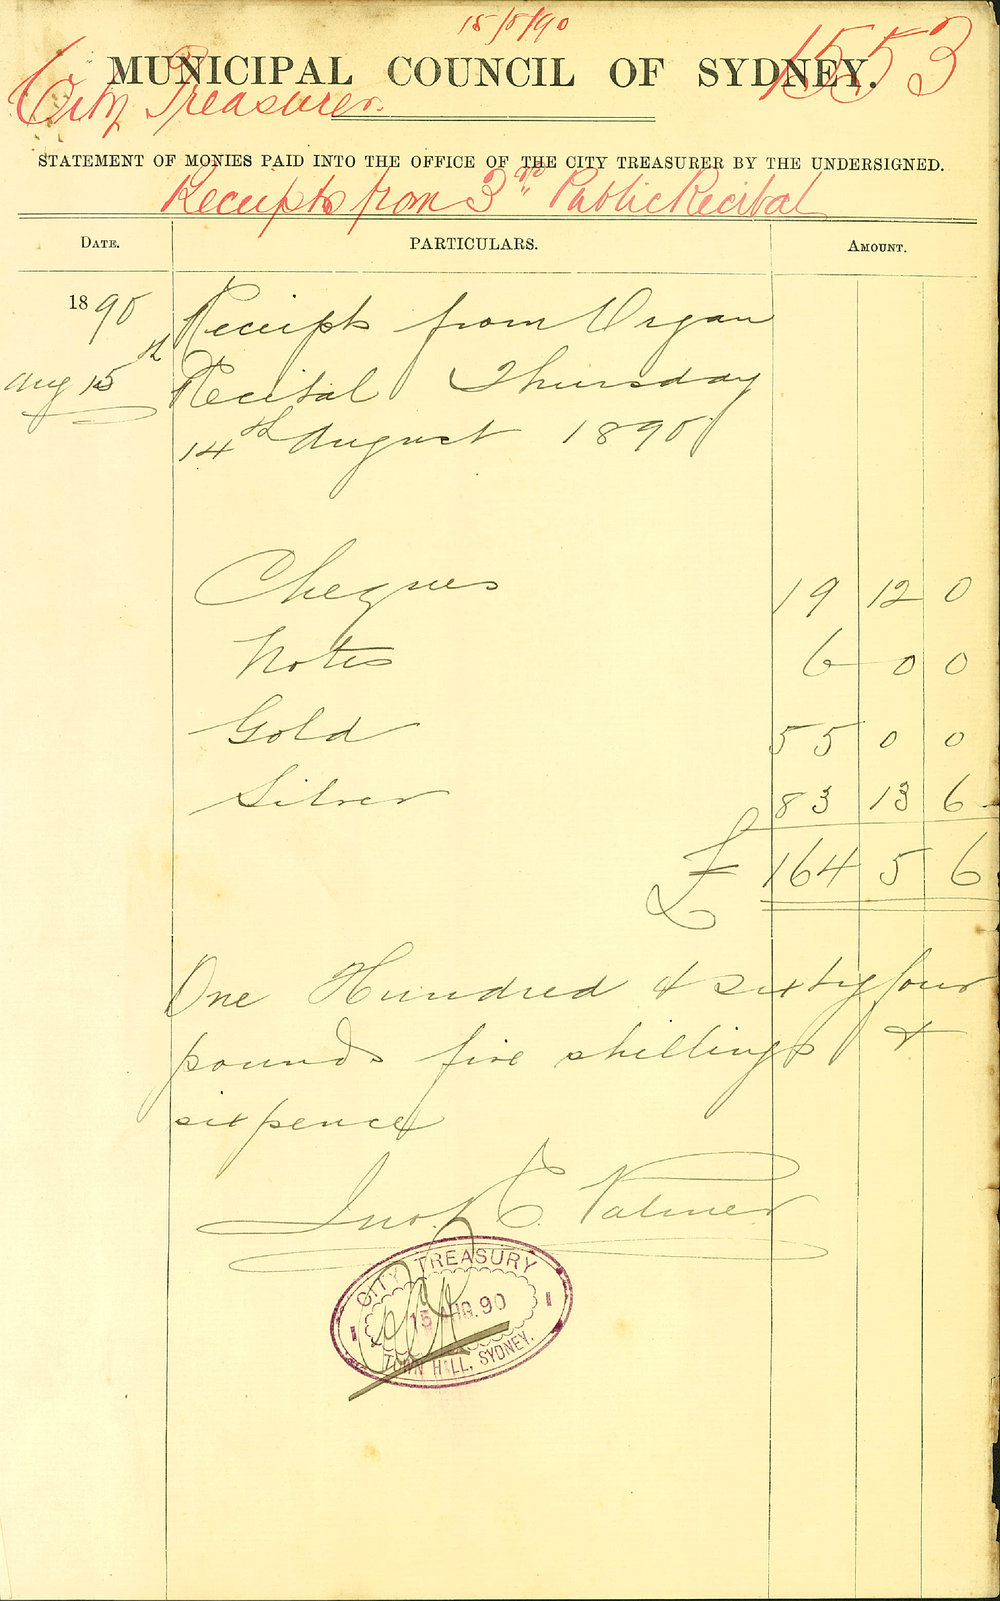 15/8/90
1553
MUNICIPAL COUNCIL OF SYDNEY.
City Treasurer.
STATEMENT OF MONIES PAID INTO THE OFFICE OF THE CITY TREASURER BY THE UNDERSIGNED.
Receipts from 3rd Public Recital
DATE. PARTICULARS. AMOUNT.
1890 Receipts from Organ
Aug 15th Recital Thursday
14th August 1890
Cheques 19 12 0
Notes 6 0 0
Gold 55 0 0
Silver 83 13 6
£ 164 5 6
One Hundred & sixty four
pounds five shillings &
sixpence
Jno. E. Palmer
CITY TREASURY
15 AUG. 90
TOWN HALL, SYDNEY.